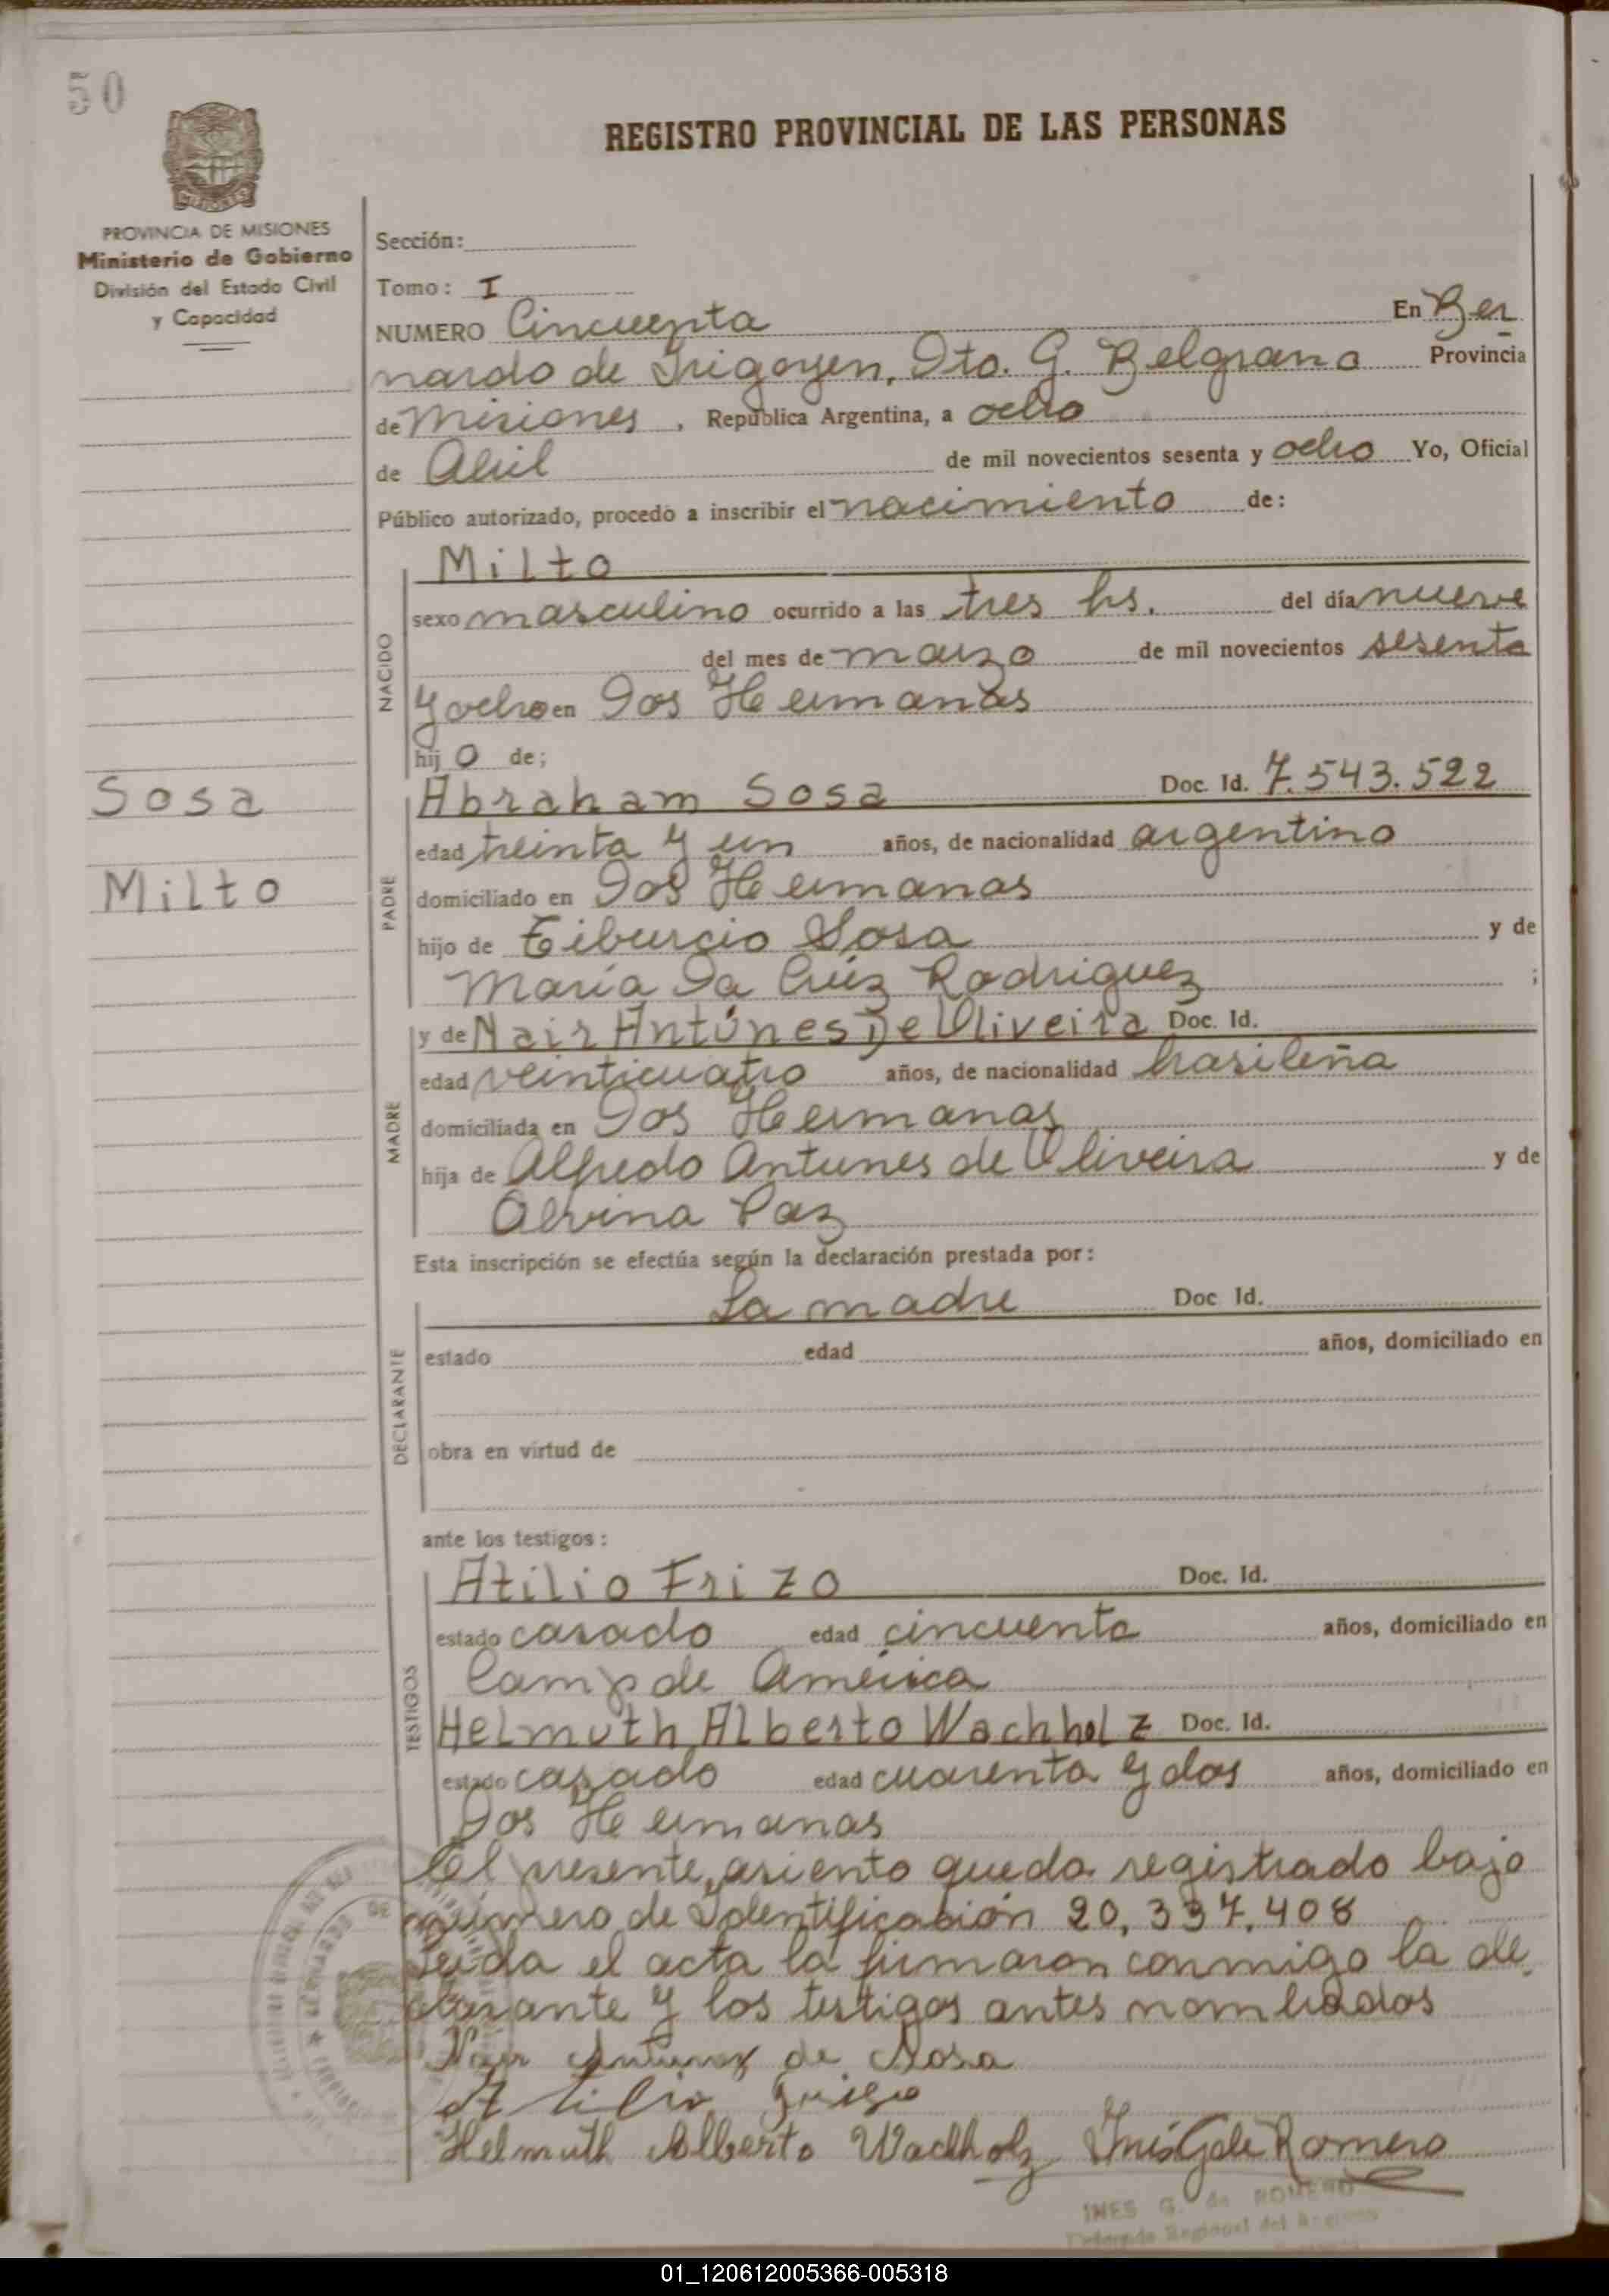 50
REGISTRO PROVINCIAL DE LAS PERSONAS
PROVINCIA DE MISIONES
Ministerio de Gobierno
División del Estado Civil
y Capacidad
Sección:
Tomo: I
NUMERO Cincuenta En Ber
nardo de Irigoyen, Dto. G. Belgrano Provincia
de Misiones, República Argentina, a ocho
de Abril de mil novecientos sesenta y ocho Yo, Oficial
Público autorizado, procedo a inscribir el nacimiento de:
NACIDO
Milto
sexo masculino ocurrido a las tres hs. del día nueve
del mes de marzo de mil novecientos sesenta
y ocho en Dos Hermanas
hijo de;
Sosa
Milto
PADRE
Abraham Sosa Doc. Id. 7.543.522
edad treinta y un años, de nacionalidad argentino
domiciliado en Dos Hermanas
hijo de Tiburcio Sosa y de
María Da Cruz Rodriguez ;
MADRE
y de Nair Antúnes De Oliveira Doc. Id.
edad veinticuatro años, de nacionalidad brasileña
domiciliada en Dos Hermanas
hija de Alfredo Antunes de Oliveira y de
Alvina Paz
Esta inscripción se efectúa según la declaración prestada por:
DECLARANTE
La madre Doc Id.
estado edad años, domiciliado en
obra en virtud de
ante los testigos:
TESTIGOS
Atilio Frizo Doc. Id.
estado casado edad cincuenta años, domiciliado en
Camp de América
Helmuth Alberto Wachholz Doc. Id.
estado casado edad cuarenta y dos años, domiciliado en
Dos Hermanas
El presente asiento queda registrado bajo
número de Identificación 20,337,408
Leida el acta la firmaron conmigo la de
clarante y los testigos antes nombrados
Nair Antunes de Sosa
Atilio Friso
Helmuth Alberto Wachholz Inés G de Romero
INES G. de ROMERO
01_120612005366-005318